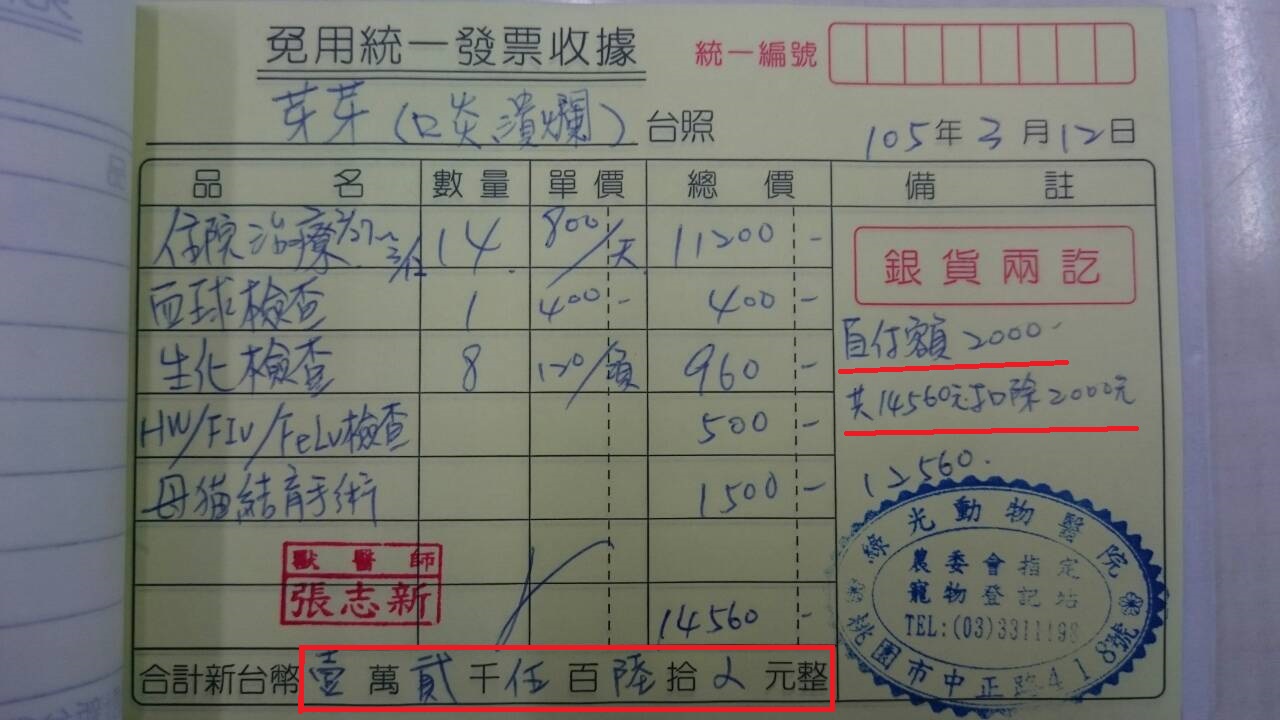 免用統一發票收據
統一編號
芽芽(口炎潰爛) 台照
105年3月12日
品名 數量 單價 總價 備註
住院治療 14 800/天 11200-
血球檢查 1 400- 400-
生化檢查 8 120/項 960-
HW/FIV/FeLv檢查 500-
母猫結育手術 1500-
14560-
合計新台幣壹萬貳千伍百陸拾元整
銀貨兩訖
自付額2000-
共14560元扣除2000元
12560.
獸醫師
張志新
綠光動物醫院
農委會指定
寵物登記站
TEL:(03)3311198
桃園市中正路418號